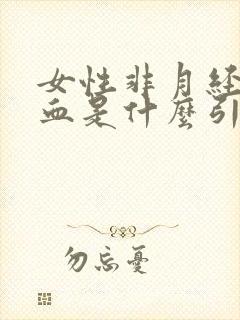 女性非月经
血是什麼引
勿忘憂